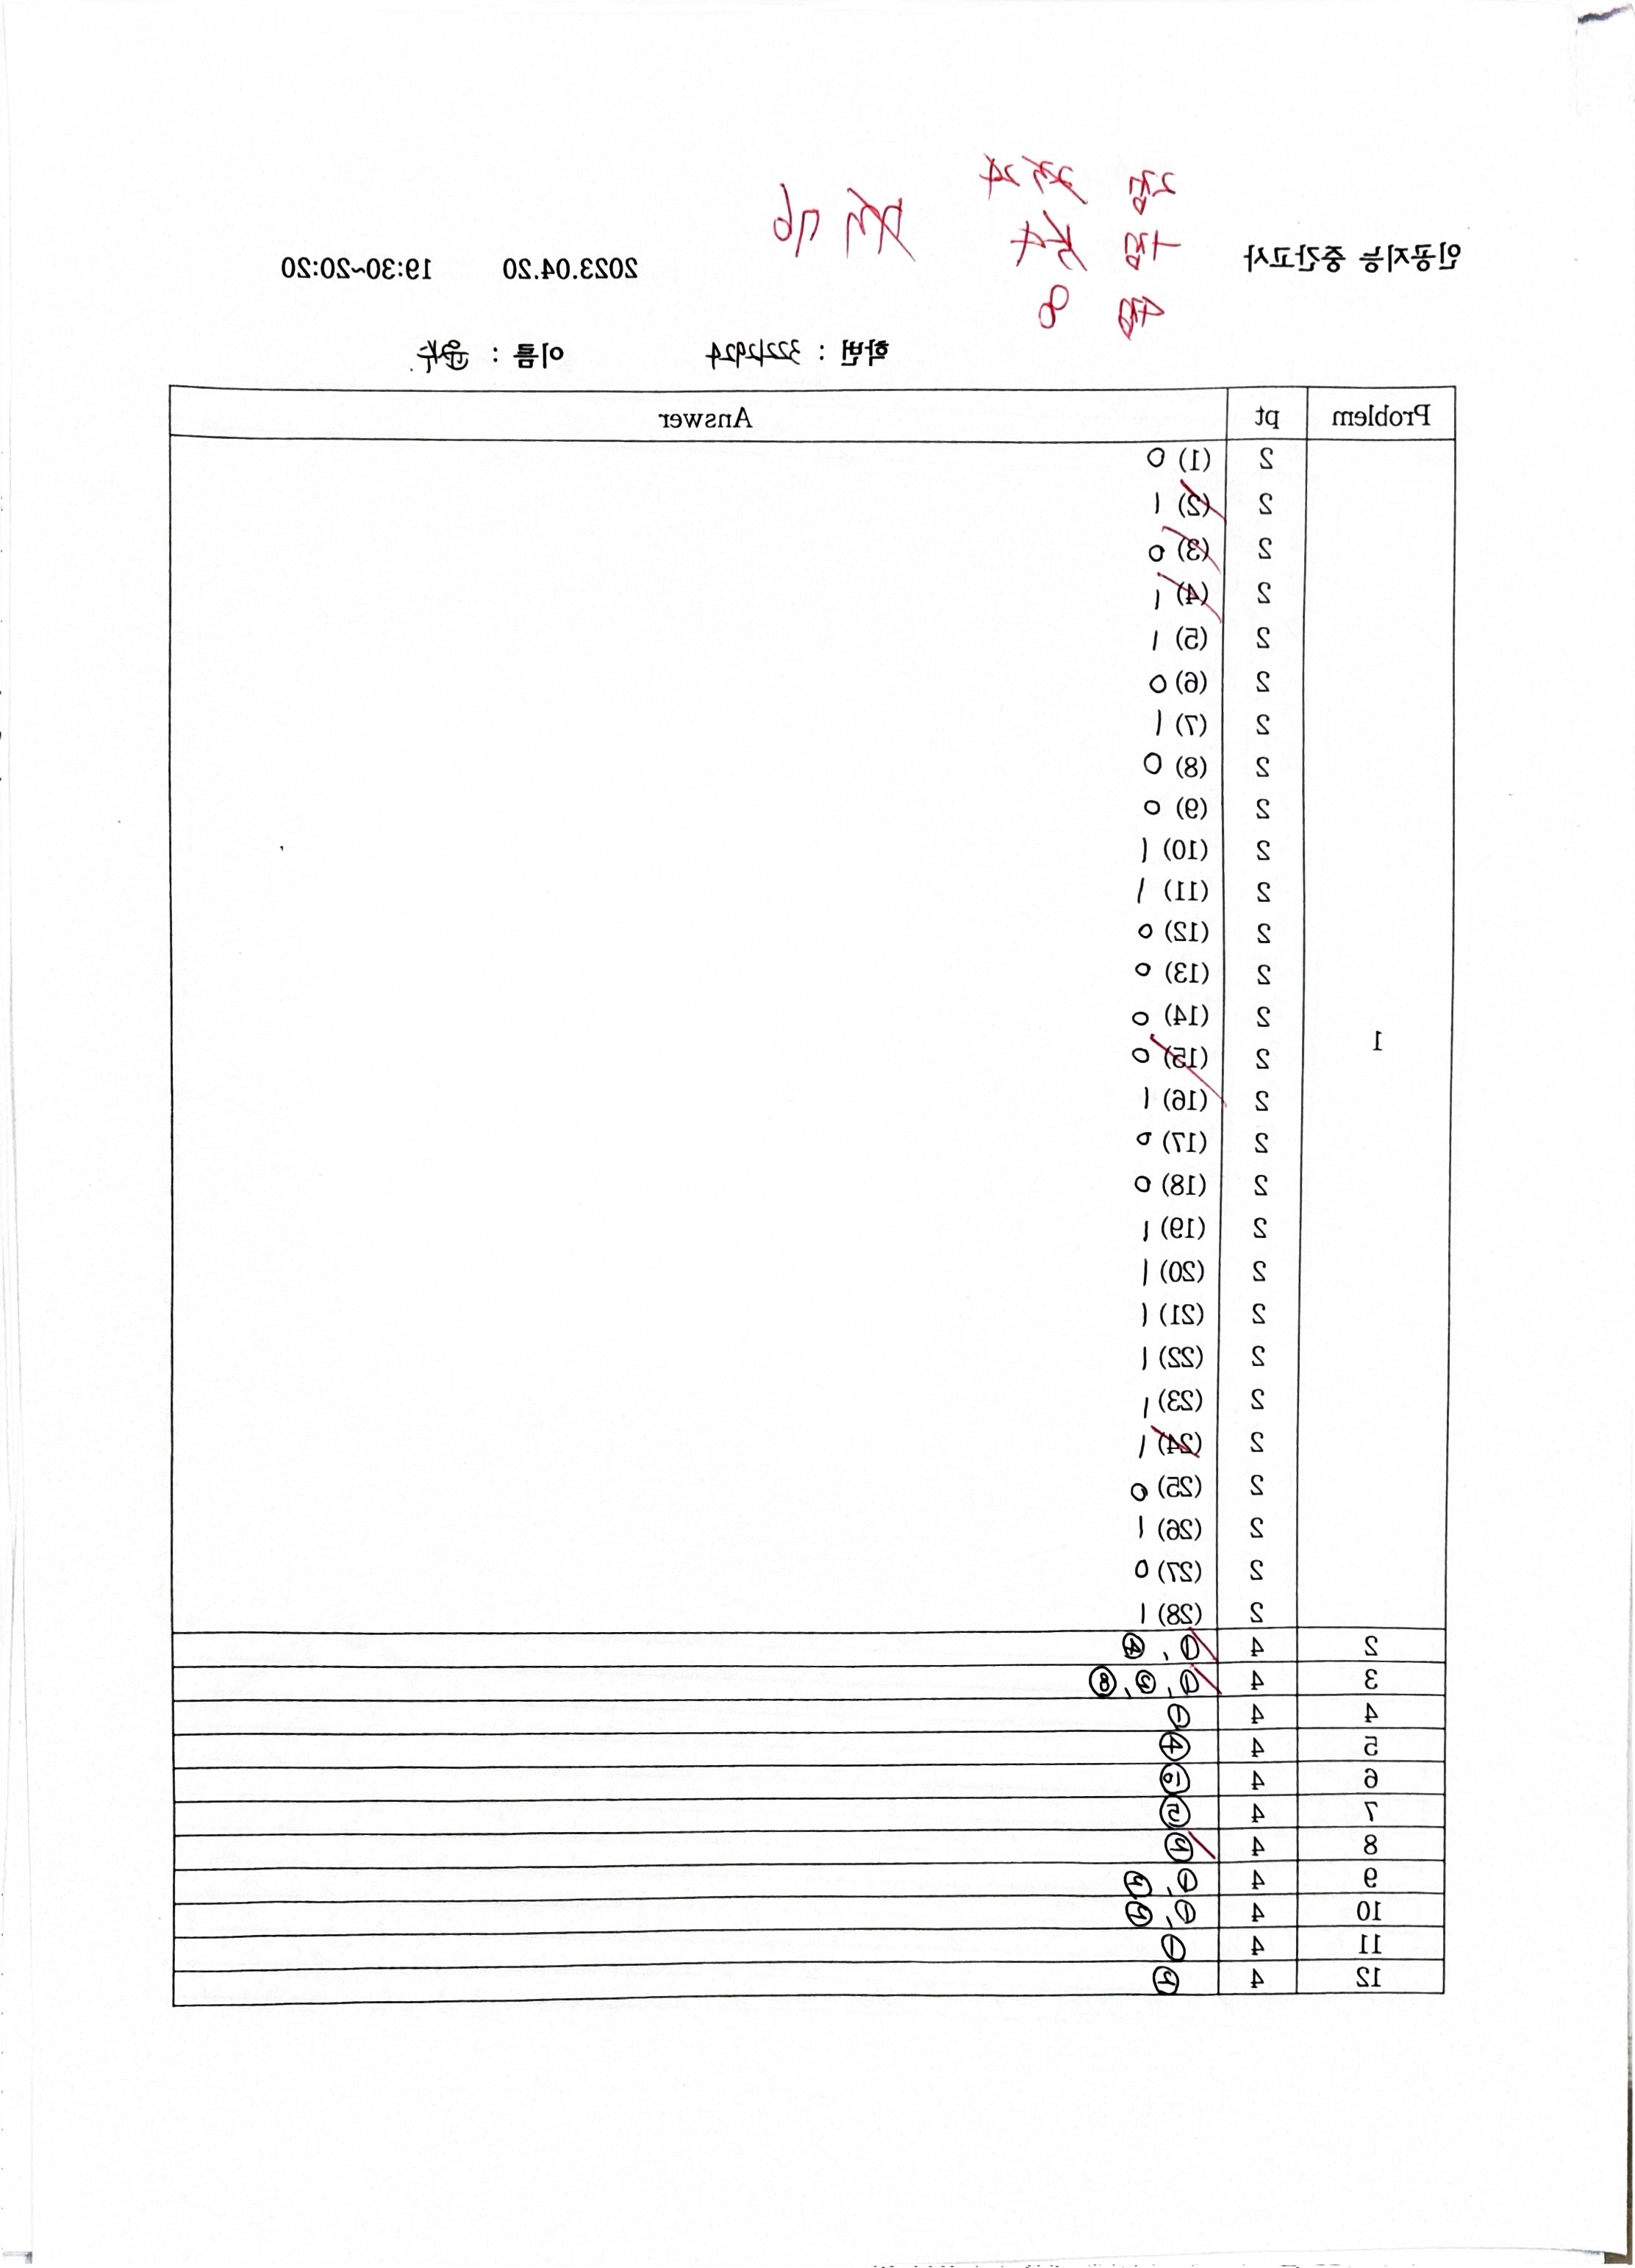 2점
4점
8
76
인공지능 중간고사 2023.04.20 19:30~20:20
학번 : 이름 :
Problem pt Answer
1
2 (1) 0
2 (2) 1
2 (3) 0
2 (4) 1
2 (5) 1
2 (6) 0
2 (7) 1
2 (8) 0
2 (9) 0
2 (10) 1
2 (11) 1
2 (12) 0
2 (13) 0
2 (14) 0
2 (15) 0
2 (16) 1
2 (17) 0
2 (18) 0
2 (19) 1
2 (20) 1
2 (21) 1
2 (22) 1
2 (23) 1
2 (24) 1
2 (25) 0
2 (26) 1
2 (27) 0
2 (28) 1
2 4 ①, ④
3 4 ①, ③, ⑧
4 4 ①
5 4 ④
6 4 ⑩
7 4 ⑤
8 4 ④
9 4 ①, ④
10 4 ①, ④
11 4 ①
12 4 ④